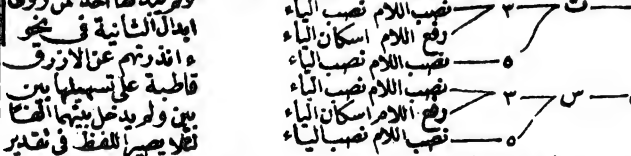 ث
٣
نصب اللام نصب الياء
رفع اللام اسكان الياء
٥
نصب اللام نصب الياء
س
٣
نصب اللام نصب الياء
رفع اللام اسكان الياء
٥
نصب اللام نصب الياء
ابدال الثانية في نحو
ءانذرتهم عن الازرق
قاطبة على تسهيلها بين
بين ولم يدخل بينهما الفا
لئلا يصير اللفظ في تقدير